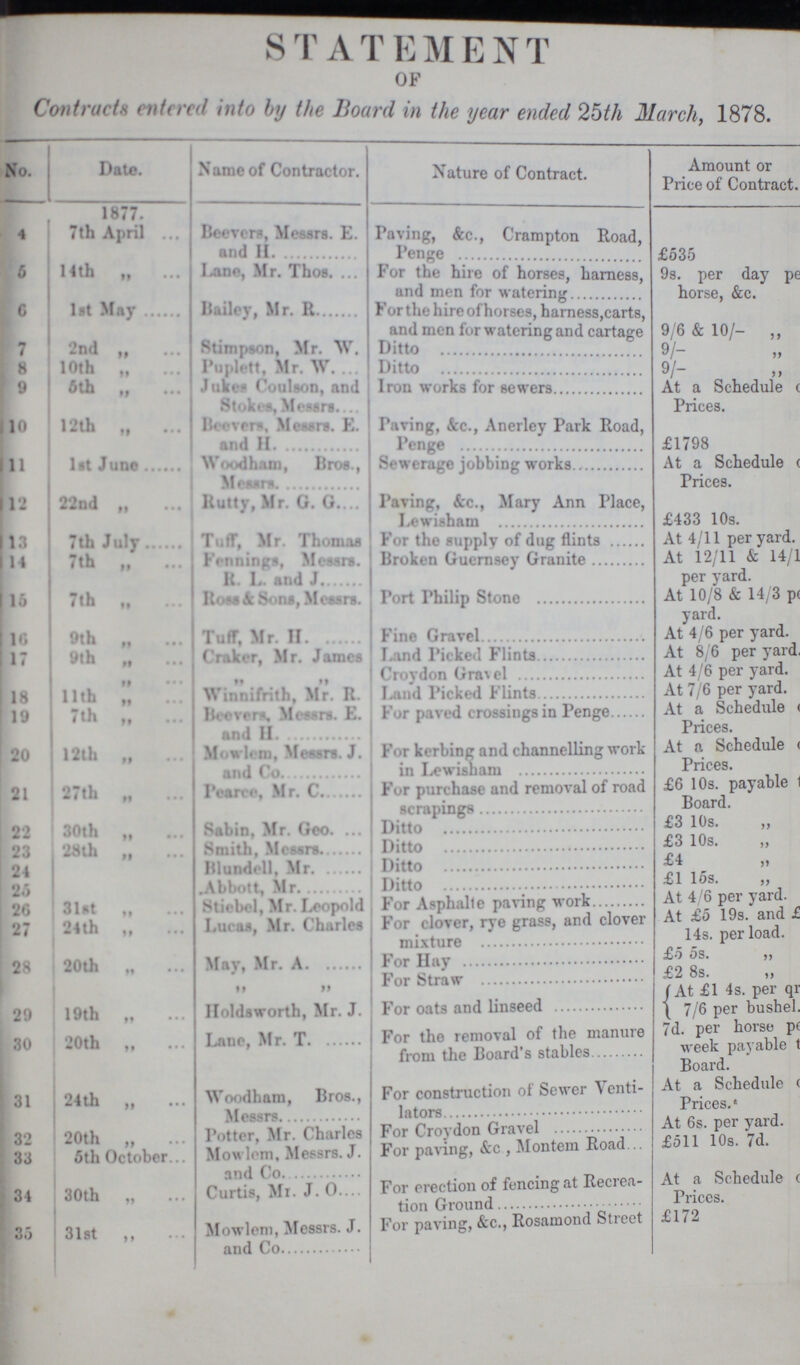 STATEMENT
OF
Contracts entered into by the Board in the year ended 25th March, 1878.
No. Date. Name of Contractor. Nature of Contract. Amount or Price of Contract.
1877.
4 7th April ... Beevers, Messrs. E. Paving, &c., Crampton Road,
and H. ............ Penge .............................. £535
5 14th „ ... Lane, Mr. Thos. ... For the hire of horses, harness, 9s. per day pe
and men for watering............ horse, &c.
6 1st May ...... Bailey, Mr. R....... For the hire of horses, harness, carts,
and men for watering and cartage 9/6 & 10/- „
7 2nd „ ... Stimpson, Mr. W. Ditto .............................. 9/- „
8 10th „ ... Puplett, Mr. W. ... Ditto .............................. 9/- „
9 5th „ ... Jukes Coulson, and Iron works for sewers............... At a Schedule
Stokes, Messrs.... Prices.
10 12th „ ... Beevers, Messrs. E. Paving, &c., Anerley Park Road,
and H. ............ Penge .............................. £1798
11 1st June ...... Woodham, Bros., Sewerage jobbing works............ At a Schedule
Messrs. ............ Prices.
12 22nd „ ... Rutty, Mr. G. G.... Paving, &c., Mary Ann Place,
Lewisham ........................ £433 10s.
13 7th July ...... Tuff, Mr. Thomas For the supply of dug flints ...... At 4/11 per yard.
14 7th „ ... Fennings, Messrs. Broken Guernsey Granite ......... At 12/11 & 14/1
R. L. and J....... per yard.
15 7th „ ... Ross & Sons, Messrs. Port Philip Stone .................. At 10/8 & 14/3 pe
yard.
16 9th „ ... Tuff, Mr. H. ...... Fine Gravel........................... At 4/6 per yard.
17 9th „ ... Craker, Mr. James Land Picked Flints.................. At 8/6 per yard.
„ ... „ „ Croydon Gravel ..................... At 4/6 per yard.
18 11th „ ... Winnifrith, Mr. R. Land Picked Flints.................. At 7/6 per yard.
19 7th „ ... Beevers, Messrs. E. For paved crossings in Penge...... At a Schedule
and H. ............ Prices.
20 12th „ ... Mowlem, Messrs. J. For kerbing and channelling work At a Schedule
and Co............. in Lewisham ..................... Prices.
21 27th „ ... Pearce, Mr. C....... For purchase and removal of road £6 10s. payable t
scrapings ........................... Board.
22 30th „ ... Sabin, Mr. Geo. ... Ditto .............................. £3 10s. „
23 28th „ ... Smith, Messrs....... Ditto .............................. £3 10s. „
24 Blundell, Mr. ...... Ditto .............................. £4 „
25 Abbott, Mr.......... Ditto .............................. £1 15s. „
26 31st „ ... Stiebel, Mr. Leopold For Asphalte paving work......... At 4/6 per yard.
27 24th „ ... Lucas, Mr. Charles For clover, rye grass, and clover At £5 19s. and £
mixture ........................... 14s. per load.
28 20th „ ... May, Mr. A. ...... For Hay .............................. £5 5s. „
„ „ For Straw ........................... £2 8s. „
29 19th „ ... Holdsworth, Mr. J. For oats and linseed ............... { At £1 4s. per qr
7/6 per bushel.
30 20th „ ... Lane, Mr. T. ...... For the removal of the manure 7d. per horse pe
from the Board's stables......... week payable t
Board.
31 24th „ ... Woodham, Bros., For construction of Sewer Venti- At a Schedule
Messrs............. lators.............................. Prices.
32 20th „ ... Potter, Mr. Charles For Croydon Gravel ............... At 6s. per yard.
33 5th October... Mowlem, Messrs. J. For paving, &c., Montem Road... £511 10s. 7d.
and Co.............
34 30th „ ... Curtis, Mr. J. O.... For erection of fencing at Recrea- At a Schedule
tion Ground ........................ Prices.
35 31st „ ... Mowlem, Messrs. J. For paving, &c., Rosamond Street £172
and Co.............